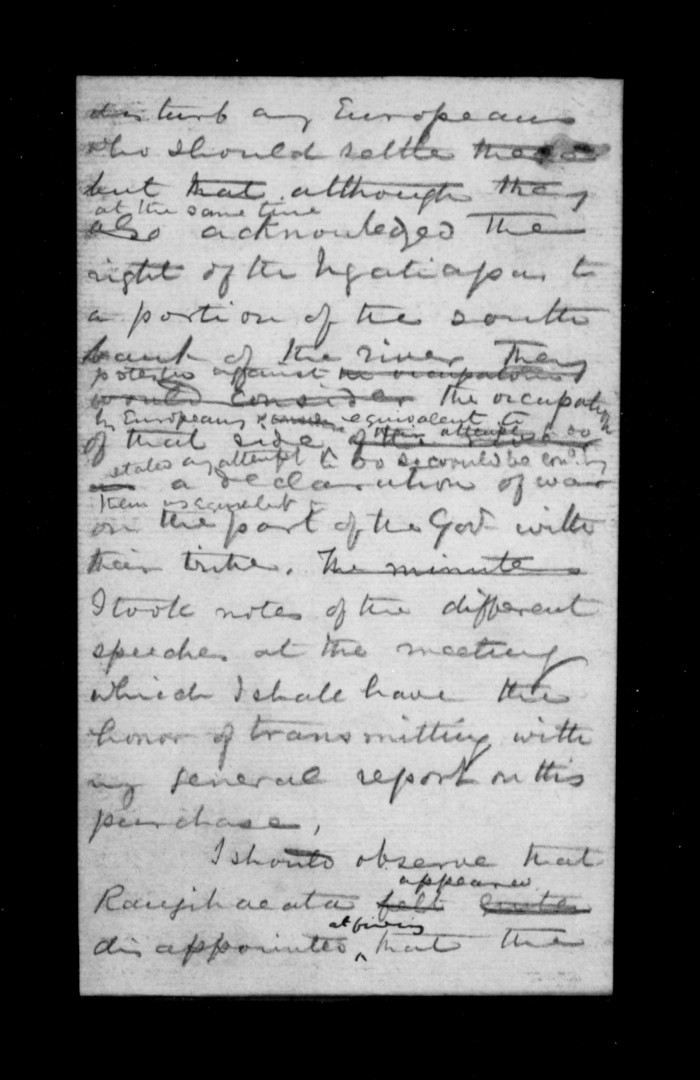 disturb any Europeans
who should settle there
but that although they
at the same time
also acknowledged the
right of the Ngatiapa to
a portion of the south
bank of the river They
protested against the occupation
would consider the occupation
by Europeans equivalent to
of that side of the
stated any attempt to do so would be cond. by
a declaration of war
them as equivalent to
on the part of the Govt with
their tribe. The minutes
I took notes of the different
speeches at the meeting
which I shall have the
honor of transmitting with
my general report on this
purchase,
I should observe that
appeared
Rangihaeata felt
at finding
disappointed ^ that the